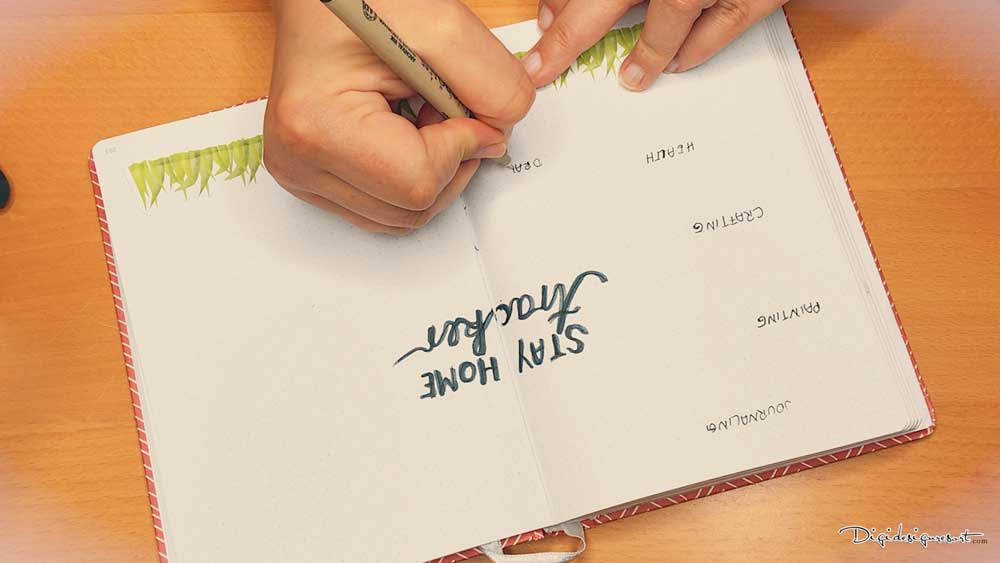 STAY HOME
tracker
JOURNALING
PAINTING
CRAFTING
HEALTH
DRA
Digidesignresort.com